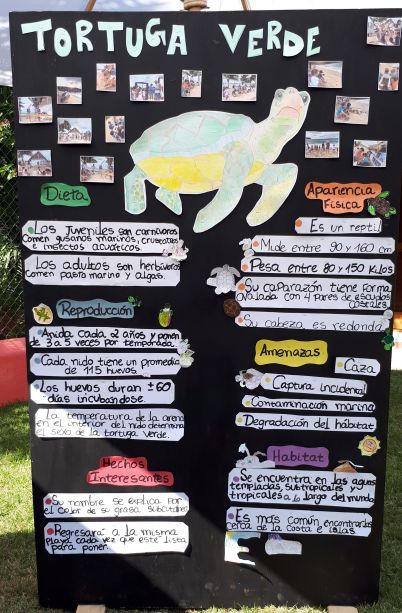 TORTUGA VERDE
Dieta
Los Juveniles son carnívoros
comen gusanos marinos, crustáceos
e insectos acuáticos.
Los adultos son herbívoros
comen pasto marino y algas.
Reproducción
Anida cada 2 años y ponen
de 3 a 5 veces por temporada.
Cada nido tiene un promedio
de 115 huevos.
Los huevos duran ± 60
días incubandose.
La temperatura de la arena
en el interior del nido determina
el sexo de la tortuga verde.
Hechos
Interesantes
Su nombre se explica por
el color de su grasa subcutánea.
Regresará a la misma
playa cada vez que esté lista
para poner.
Apariencia
Física
Es un reptil
Mide entre 90 y 160 cm
Pesa entre 80 y 150 Kilos
Su caparazón tiene forma
ovalada con 4 pares de escudos
costales.
Su cabeza es redonda
Amenazas
Caza
Captura incidental
Contaminación marina
Degradación del hábitat
Habitat
Se encuentra en las aguas
templadas, subtropicales y
tropicales a lo largo del mundo.
Es más común encontrarlas
cerca de la costa e islas.